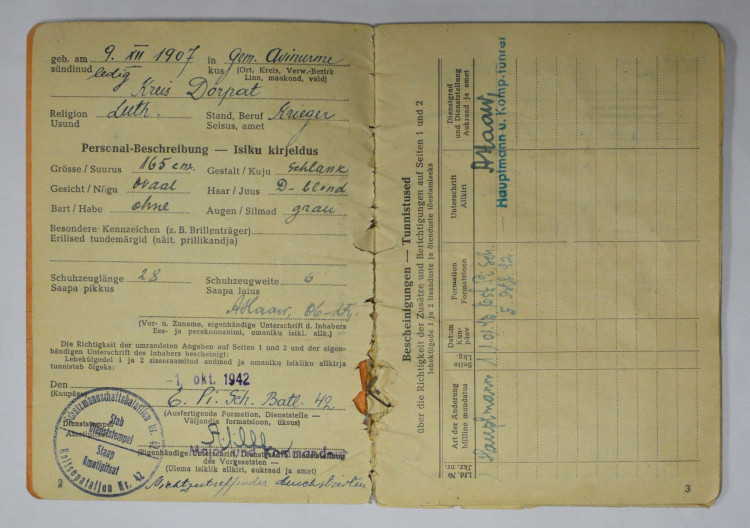 geb. am 9. XII 1907 in Gem. Avinurme
sündinud ledig kus (Ort, Kreis, Verw.-Bezirk
Linn, maakond, vald)
Kreis Dorpat
Religion Luth. Stand, Beruf Krieger
Usund Seisus, amet
Personal-Beschreibung — Isiku kirjeldus
Grösse / Suurus 165 cm. Gestalt / Kuju schlank
Gesicht / Nägu Ovaal Haar / Juus D-blond
Bart / Habe ohne Augen / Silmad graau
Besondere Kennzeichen (z. B. Brillenträger)
Erilised tundemärgid (näit. prillikandja)
Schuhzeuglänge 28 Schuhzeugweite 6
Saapa pikkus Saapa laius
(Vor- u. Zuname, eigenhändige Unterschrift d. Inhabers
Ees- ja perekonnanimi, omaniku isikl. allk.)
Die Richtigkeit der umrandeten Angaben auf Seiten 1 und 2 und der eigen-
händigen Unterschrift des Inhabers bescheinigt:
Lehekülgedel 1 ja 2 sisseraamitud andmed ja omaniku isikliku allkirja
tunnistab õigeks:
Den -1. okt. 1942
(Kuupäev)
E. Pi. Sch. Batl. 42
(Ausfertigende Formation, Dienststelle —
Väljandja formatsioon, üksus)
Dienststempel
Major und Kommandeur
(Eigenhändige Unterschrift, Dienstgrad u. Dienststellung
des Vorgesetzten —
(Ülema isiklik allkiri, aukraad ja amet)
Schutzmannschaftsbataillon Nr. 42
Stab
Dienststempel
Staap
Ametipitsat
Kaitsepataljon Nr. 42
2
Bescheinigungen — Tunnistused
über die Richtigkeit der Zusätze und Berichtigungen auf Seiten 1 und 2
lehekülgede 1 ja 2 lisanduste ja õienduste tõestamiseks
Lfd. Nr.
Jkr. nr.
Art der Änderung
Milline muudatus
Seite
Lkg.
Datum
Kuu-
päev
Formation
Formatsioon
Unterschrift
Allkiri
Dienstgrad
und Dienststellung
Aukraad ja amet
Hauptmann
Hauptmann u. Komp.führer
3